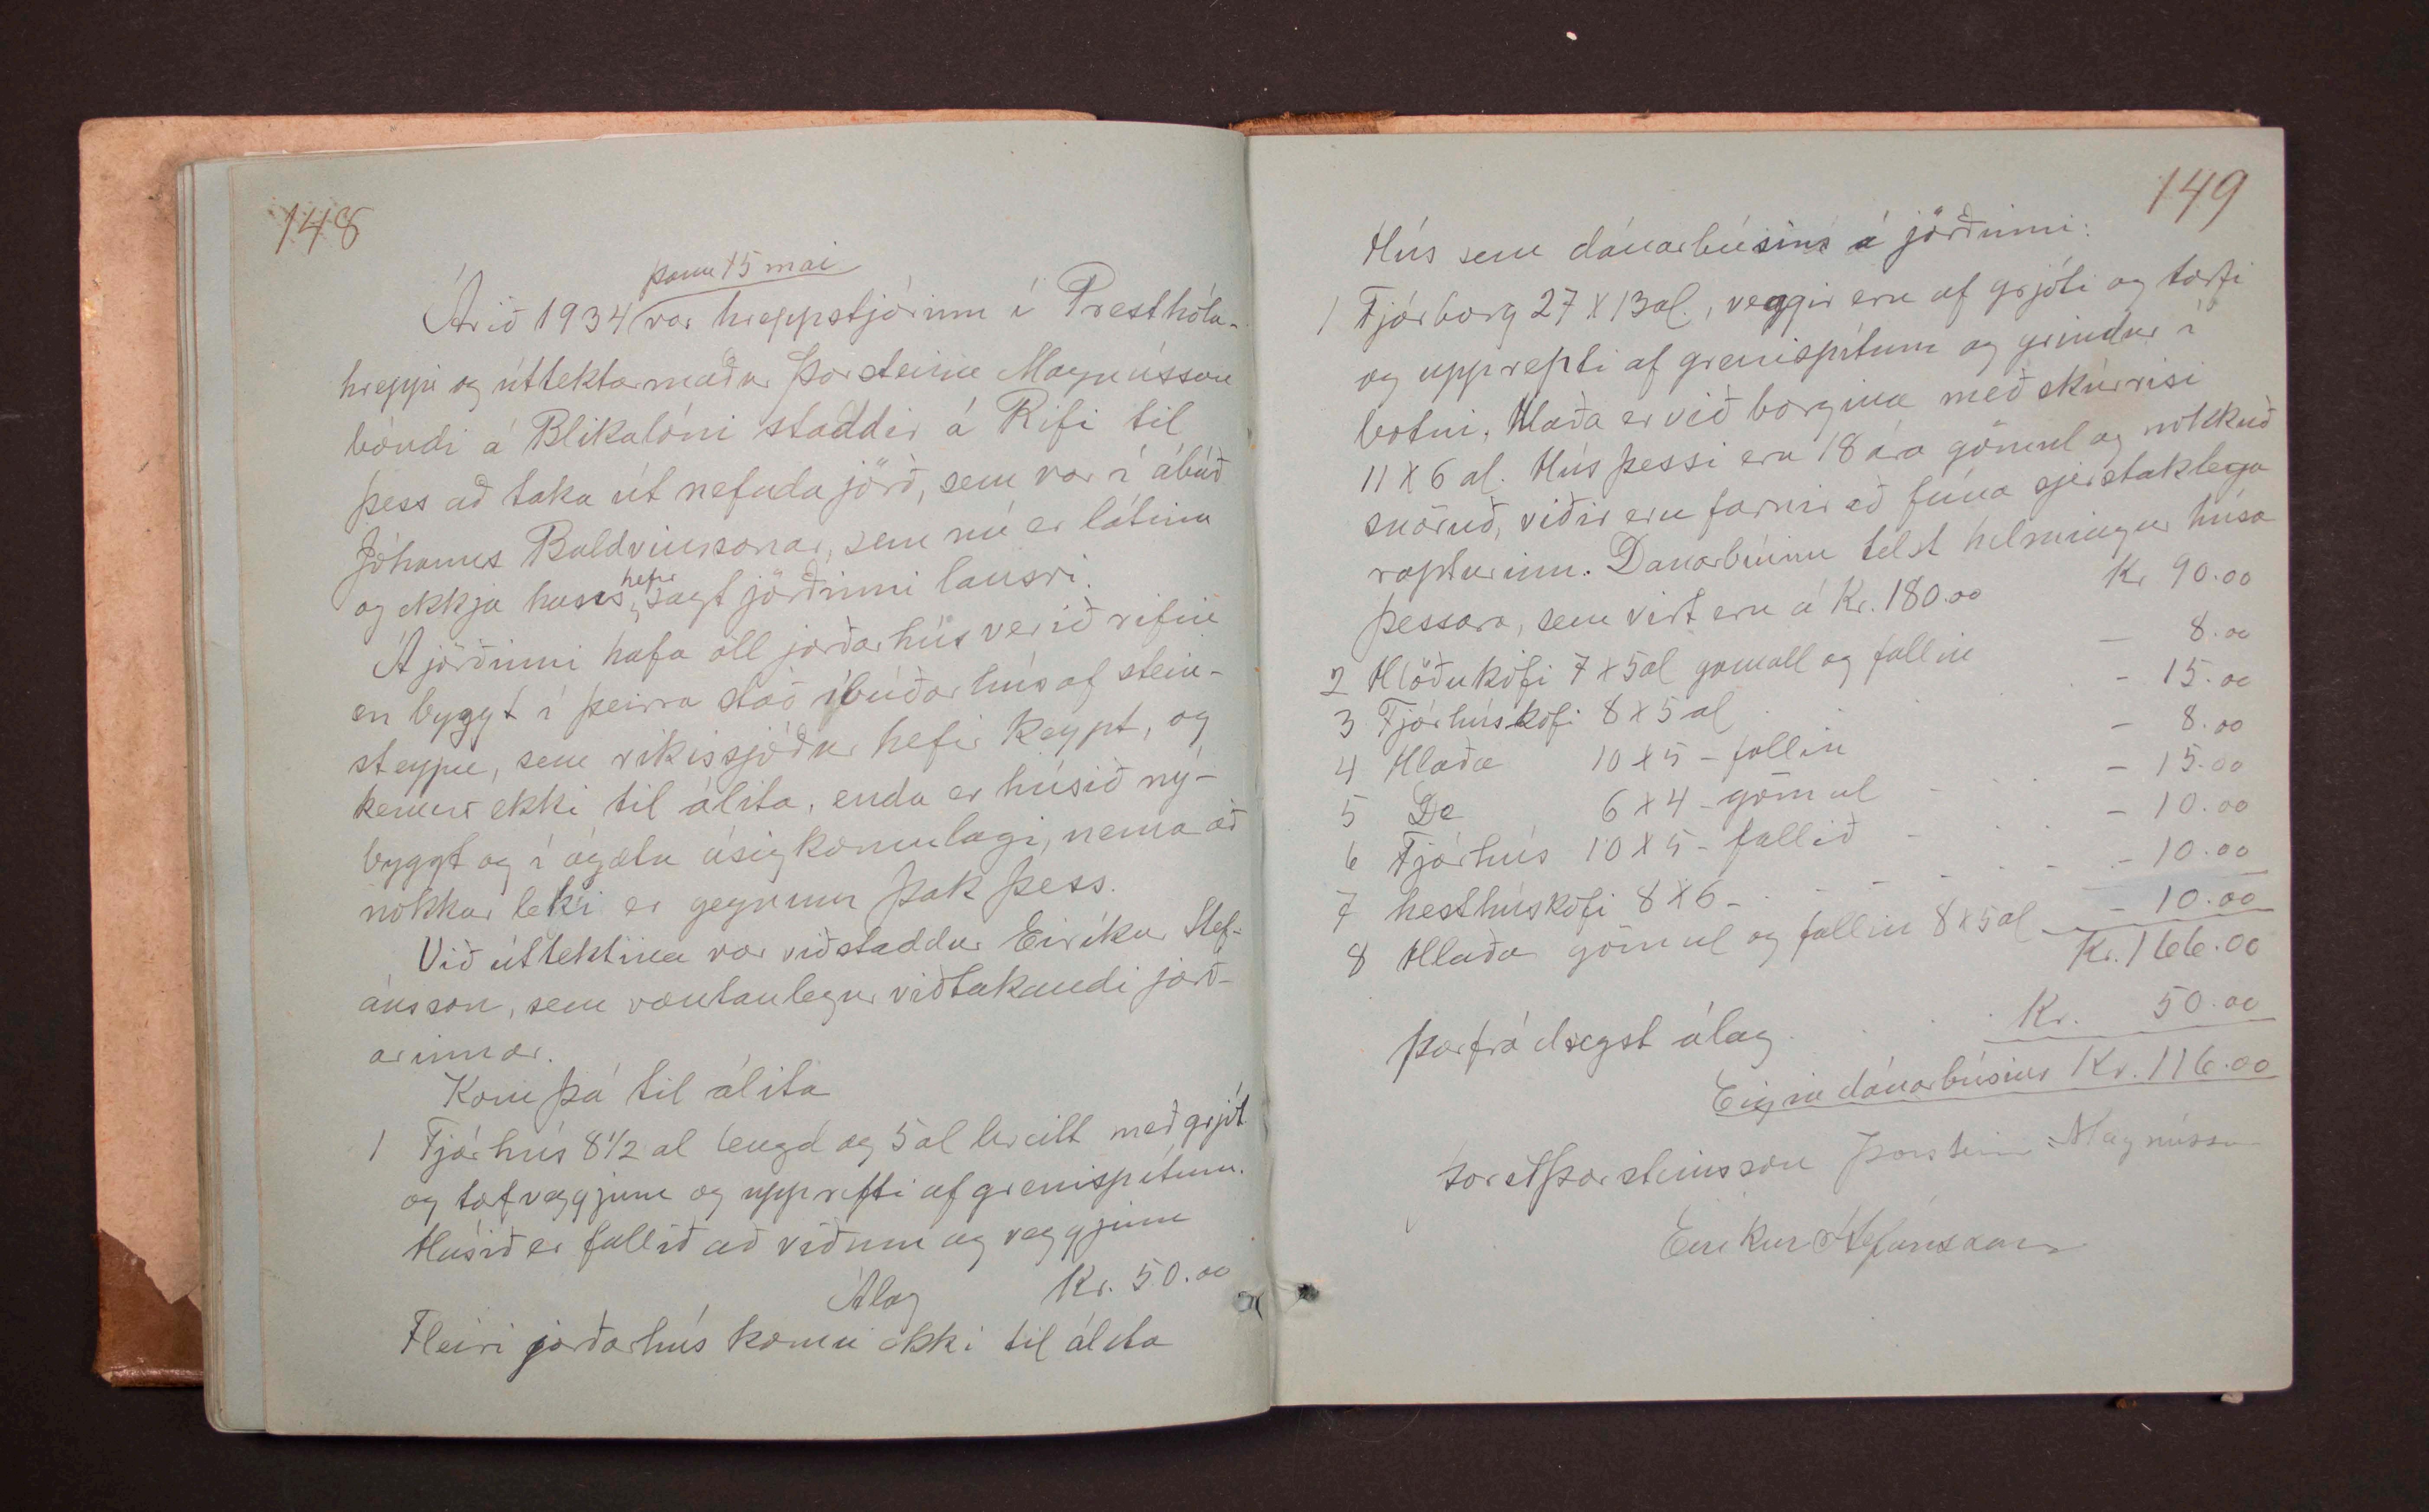 148
þann 15 mai
Árið 1934 var hreppstjórinn í Presthóla-
hreppi og úttektarmaður Þorsteinn Magnússon
bóndi á Blikalóni staddir á Rifi til
þess að taka út nefnda jörð, sem var í ábúð
Jóhanns Baldvinssonar, sem nú er látinn
hefir
og ekkja hans sagt jörðinni lausri.
Á jörðinni hafa öll jarðarhús verið rifin
en byggt í þeirra stað íbúðarhús af stein-
steypu, sem ríkissjóður hefir keypt, og
kemur ekki til álita, enda er húsið ný-
byggt og í ágætu ásigkomulagi, nema að
nokkur leki er gegnum þak þess.
Við úttektina var viðstaddur Eiríkur Stef-
ánsson, sem væntanlegur viðtakandi jarð-
arinnar.
Kom þá til álita
1 Fjárhús 8 1/2 al lengd og 5 al breitt með grjót
og torfveggjum og upprefti af grenispítum.
Húsið er fallið að viðum og veggjum
Álag Kr. 50.00
Fleiri jarðarhús komu ekki til álita
149
Hús sem dánarbúsins á jörðinni:
1 Fjárborg 27 X 13 al., veggir eru af grjóti og torfi
og upprepti af grenispítum og grindur í
botni. Hlaða er við borgina með skúrrisi
11 X 6 al. Hús þessi eru 18 ára gömul og nokkuð
snöruð, viðir eru farnir að fúna sjerstaklega
rapturinn. Danarbúinu telst helmingur húsa
þessara, sem virt eru á Kr. 180.00 Kr 90.00
2 Hlöðukofi 7 x 5 al gamall og fallin - 8.00
3 Fjárhúskofi 8 x 5 al - 15.00
4 Hlaða 10 x 5 - fallin - 8.00
5 Do 6 x 4 - gömul - 15.00
6 Fjárhús 10 X 5 - fallið - 10.00
7 hesthúskofi 8 X 6 - - 10.00
8 Hlaða gömul og fallin 8 x 5 al - 10.00
Kr. 166.00
Þarfrá dregst álag Kr. 50.00
Eign dánarbúsins Kr. 116.00
Þorst Þorsteinsson Þorsteinn Magnússon
Eiríkur Stefánsson